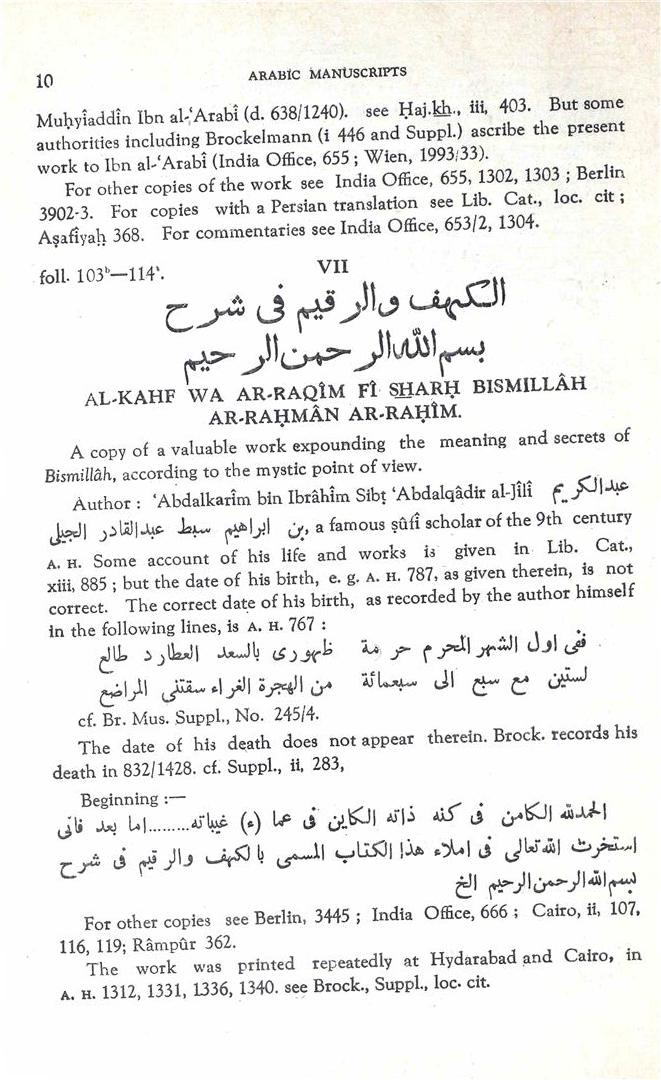 10 ARABIC MANUSCRIPTS
Muḥyîaddîn Ibn al-‘Arabî (d. 638/1240). see Ḥaj.kh., iii, 403. But some
authorities including Brockelmann (i 446 and Suppl.) ascribe the present
work to Ibn al-‘Arabî (India Office, 655 ; Wien, 1993/33).
For other copies of the work see India Office, 655, 1302, 1303 ; Berlin
3902-3. For copies with a Persian translation see Lib. Cat., loc. cit ;
Aṣafîyaḥ 368. For commentaries see India Office, 653/2, 1304.
foll. 103ᵇ—114ᵃ. VII
الكهف والرقيم فى شرح
بسم الله الرحمن الرحيم
AL-KAHF WA AR-RAQÎM FÎ SHARḤ BISMILLÂH
AR-RAḤMÂN AR-RAḤÎM.
A copy of a valuable work expounding the meaning and secrets of
Bismillâh, according to the mystic point of view.
Author : ‘Abdalkarîm bin Ibrâhîm Sibṭ ‘Abdalqâdir al-Jîlî عبد الكريم
بن ابراهيم سبط عبد القادر الجيلى, a famous ṣûfî scholar of the 9th century
A. H. Some account of his life and works is given in Lib. Cat.,
xiii, 885 ; but the date of his birth, e. g. A. H. 787, as given therein, is not
correct. The correct date of his birth, as recorded by the author himself
in the following lines, is A. H. 767 :
ففى اول الشهر المحرم حرمة ظهورى بالسعد العطارد طالع
لستين مع سبع الى سبعمائة من الهجرة الغراء سقتنى المراضع
cf. Br. Mus. Suppl., No. 245/4.
The date of his death does not appear therein. Brock. records his
death in 832/1428. cf. Suppl., ii, 283,
Beginning :—
الحمد لله الكامن فى كنه ذاته الكاين فى عما (ء) غيباته.........اما بعد فانى
استخرت الله تعالى فى املاء هذا الكتاب المسمى بالكهف والرقيم فى شرح
بسم الله الرحمن الرحيم الخ
For other copies see Berlin, 3445 ; India Office, 666 ; Cairo, ii, 107,
116, 119; Râmpûr 362.
The work was printed repeatedly at Hydarabad and Cairo, in
A. H. 1312, 1331, 1336, 1340. see Brock., Suppl., loc. cit.